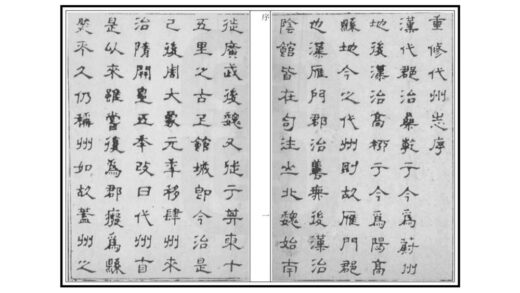 重修代州志序
漢代郡治桑乾于今爲蔚州
地後漢治高柳于今爲陽高
縣地今之代州則故雁門郡
地漢雁門郡治善無後漢治
陰館皆在句注之北魏始南
序
一
徙廣武後魏又徙于其東十
五里之古上館城卽今治是
已後周大象元年移肆州來
治隋開皇五年改曰代州自
是以來雖嘗復爲郡廢爲縣
然不久仍稱州如故蓋州之